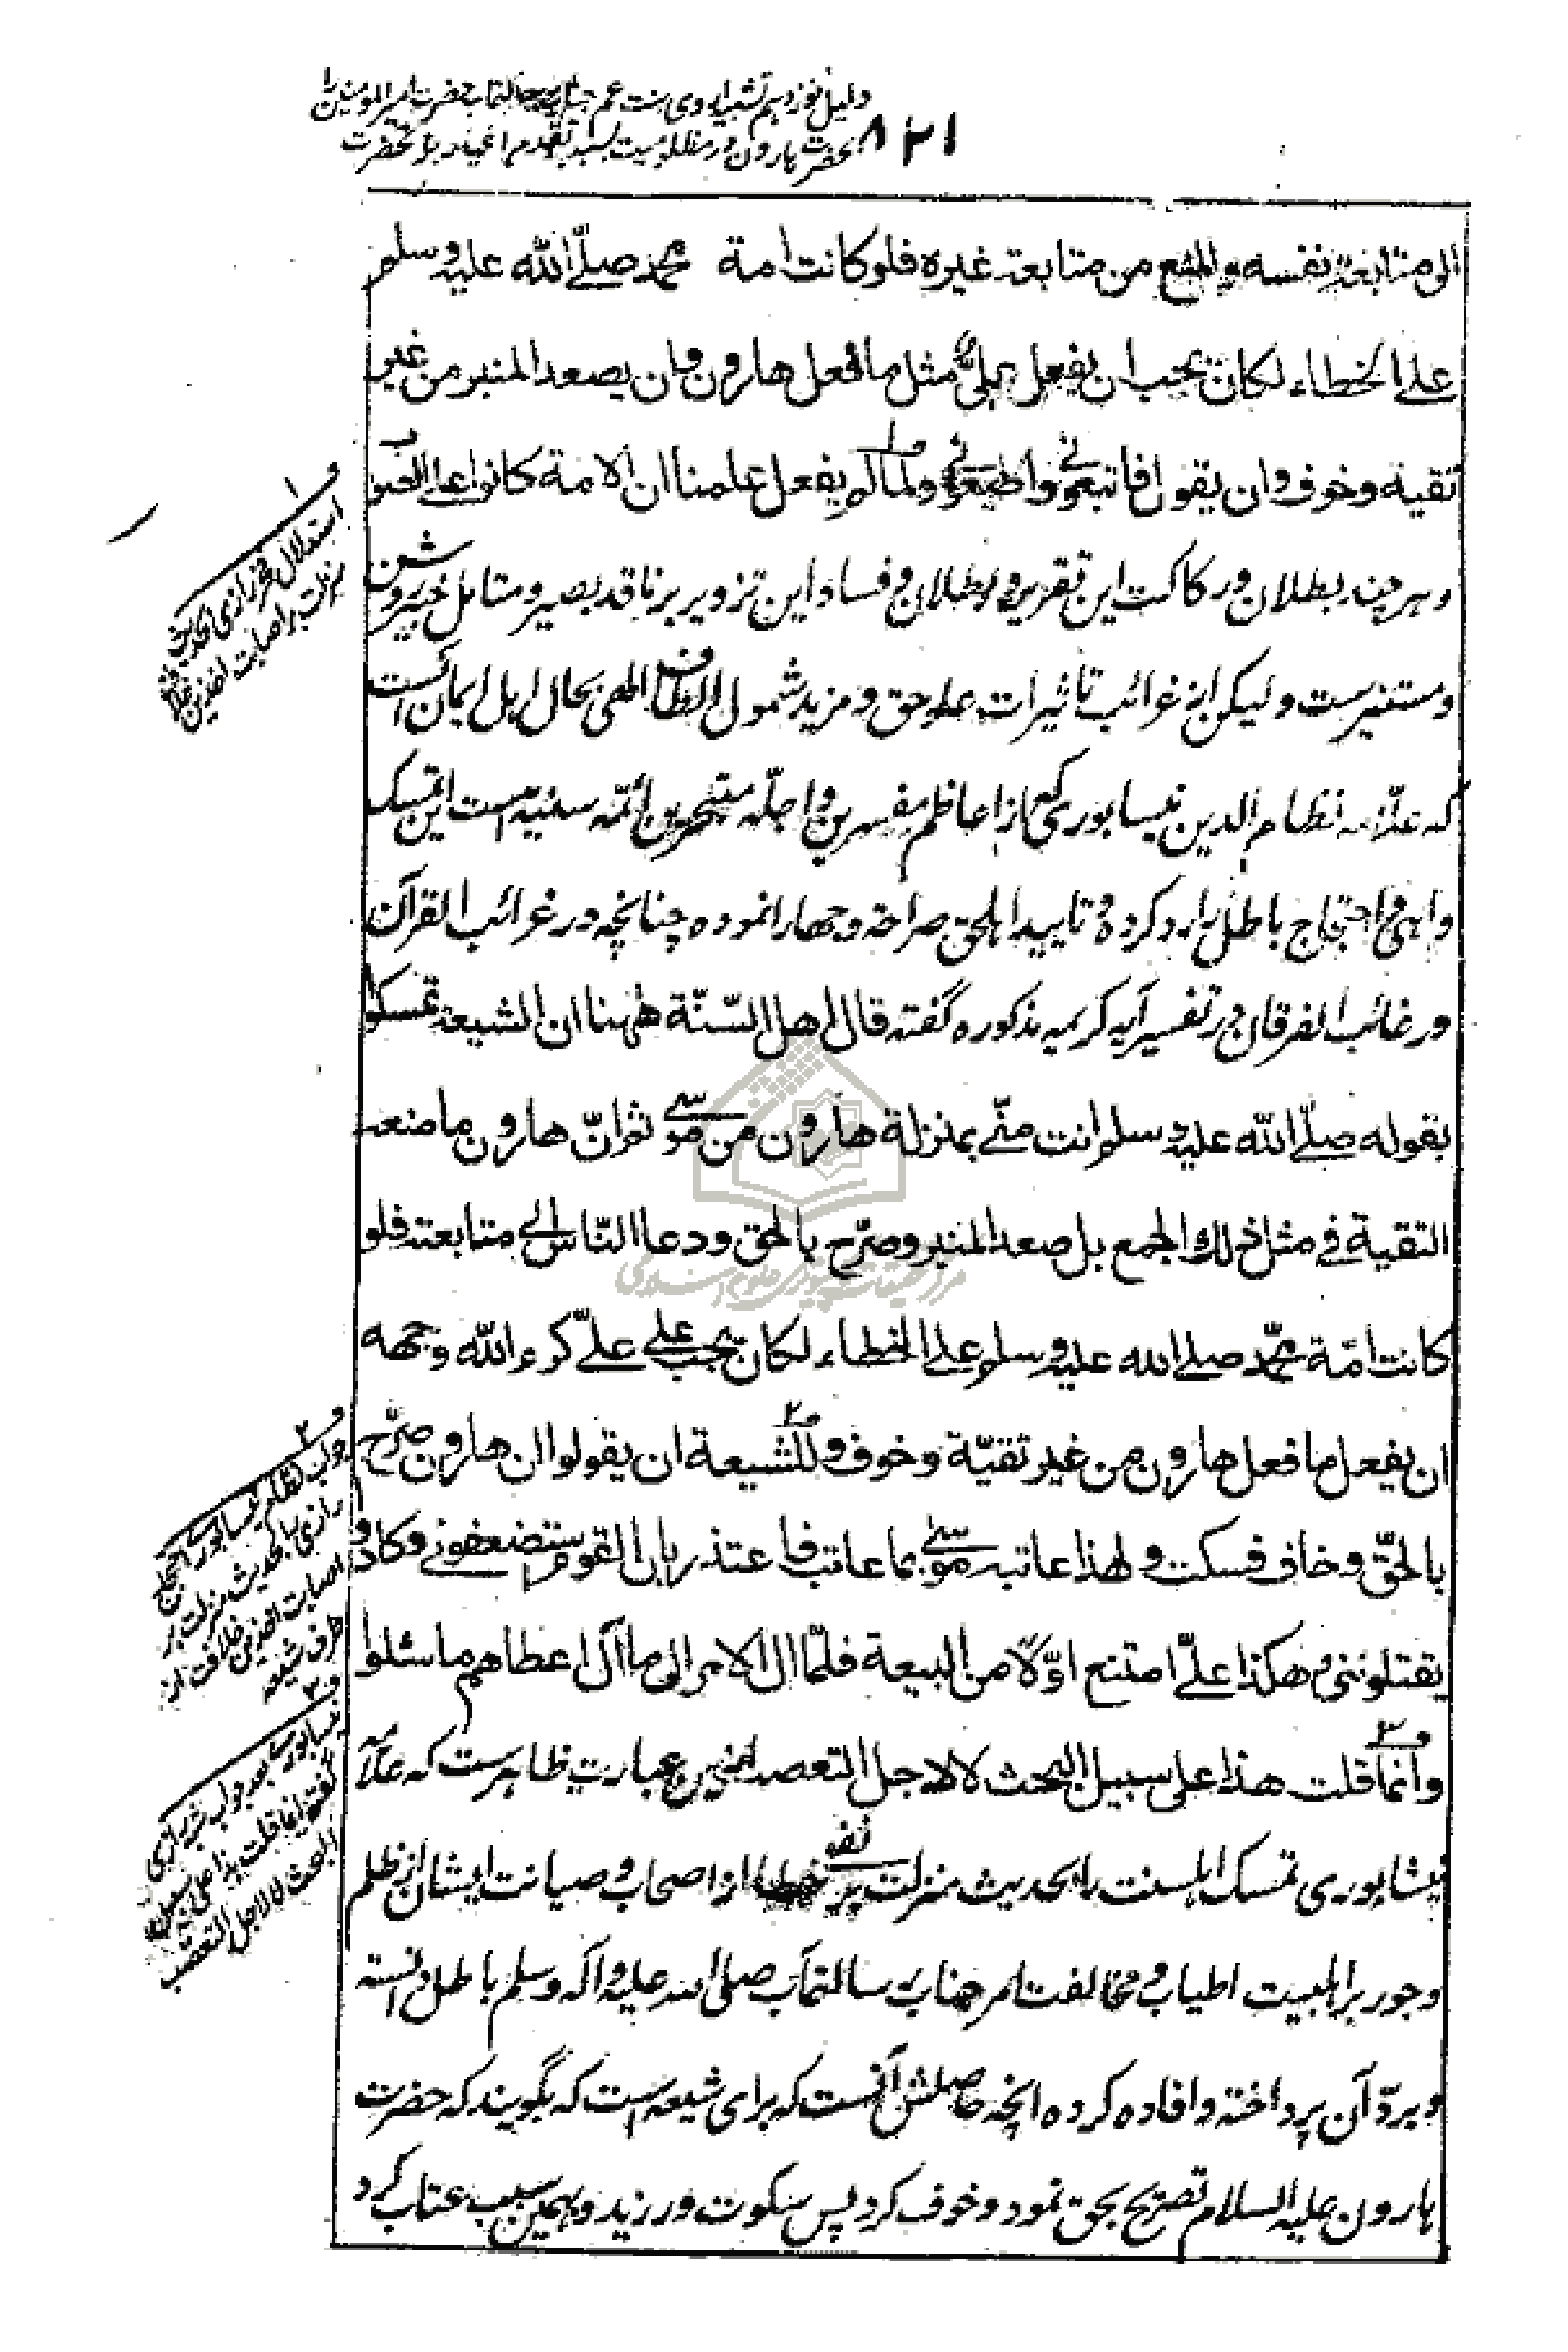 دلیل نوزدهم تشبیه ابن عم جناب رسالتمآب حضرت امیر المومنین را
بحضرت هارون در مظلومیت بسبب تقدم اغیار بر آنحضرت
۸۲۱
الی متابعة نفسه والمنع من متابعة غیره فلو کانت امة محمد صلّی الله علیه وسلم
علی الخطاء لکان یجب ان یفعل علیّ مثل ما فعل هارون وان یصعد المنبر من غیر
تقیه وخوف وان یقول فاتبعونی واطیعوا ولما لم یفعل علمنا ان الامة کانوا علی الصواب
وهرچند بطلان ورکاکت این تقریر و بطلان وفساد این تزویر بر ناقد بصیر ومتامل خبیر روشن
ومستنیرست ولیکن از غرائب تاثیرات علو حق ومزید شمول الطاف الهی بحال اهل ایمان آنست
که علّامه نظام الدین نیسابوری که از اعاظم مفسرین واجلّه متبحرین ائمّه سنیه است این تمسک
واهی واحتجاج باطل را رد کرده وتایید اهل حق صراحة وجهارا نموده چنانچه در غرائب القرآن
ورغائب الفرقان در تفسیر آیه کریمه مذکوره گفته قال اهل السّنّة ههنا ان الشیعة تمسکوا
بقوله صلّی الله علیه وسلم انت منّی بمنزلة هارون من موسی ثم انّ هارون ما منعه
التقیة فی مثل ذلک الجمع بل صعد المنبر وصرّح بالحق ودعا النّاس الی متابعته فلو
کانت امّة محمّد صلی الله علیه وسلم علی الخطاء لکان یجب علی علیّ کرم الله وجهه
ان یفعل ما فعل هارون من غیر تقیّة وخوف وللشیعة ان یقولوا ان هارون صرّح
بالحقّ وخاف فسکت ولهذا عاتبه موسی بما عاتب فاعتذر بان القوم استضعفونی وکادوا
یقتلوننی وهکذا علیّ امتنع اوّلا من البیعة فلمّا ال الامر الی ما آل اعطاهم ما سئلوا
وانما قلت هذا علی سبیل البحث لا لاجل التعصب ازین عبارت ظاهرست که علّامه
نیشاپوری تمسک اهلسنت را بحدیث منزلت بر نفی خطا از اصحاب وصیانت ایشان از ظلم
وجور بر اهلبیت اطیاب و مخالفت امر جناب رسالتمآب صلی الله علیه وآله وسلم باطل دانسته
وبردّ آن پرداخته وافاده کرده آنچه حاصلش آنست که برای شیعه است که بگویند که حضرت
هارون علیه السلام تصریح بحق نمود وخوف کرد پس سکوت ورزید وبهمین سبب عتاب کرد
و۱
استدلال فخر رازی بحدیث
منزلت بر اصابت آخذین خلافت
و۲
جواب نظام نیسابوری احتجاج
رازی بحدیث منزلت بر
اصابت آخذین خلافت از
طرف شیعه
و۳
نیسابوری بعد جواب فخر رازی
گفته انما قلت هذا علی سبیل
البحث لا لاجل التعصب
مرکز تحقیقات کامپیوتری علوم اسلامی